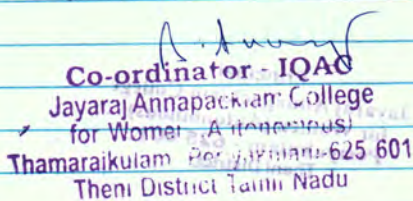 Co-ordinator - IQAC
Jayaraj Annapackiam College
for Women (Autonomous)
Thamaraikulam 625 601
Theni District Tamil Nadu